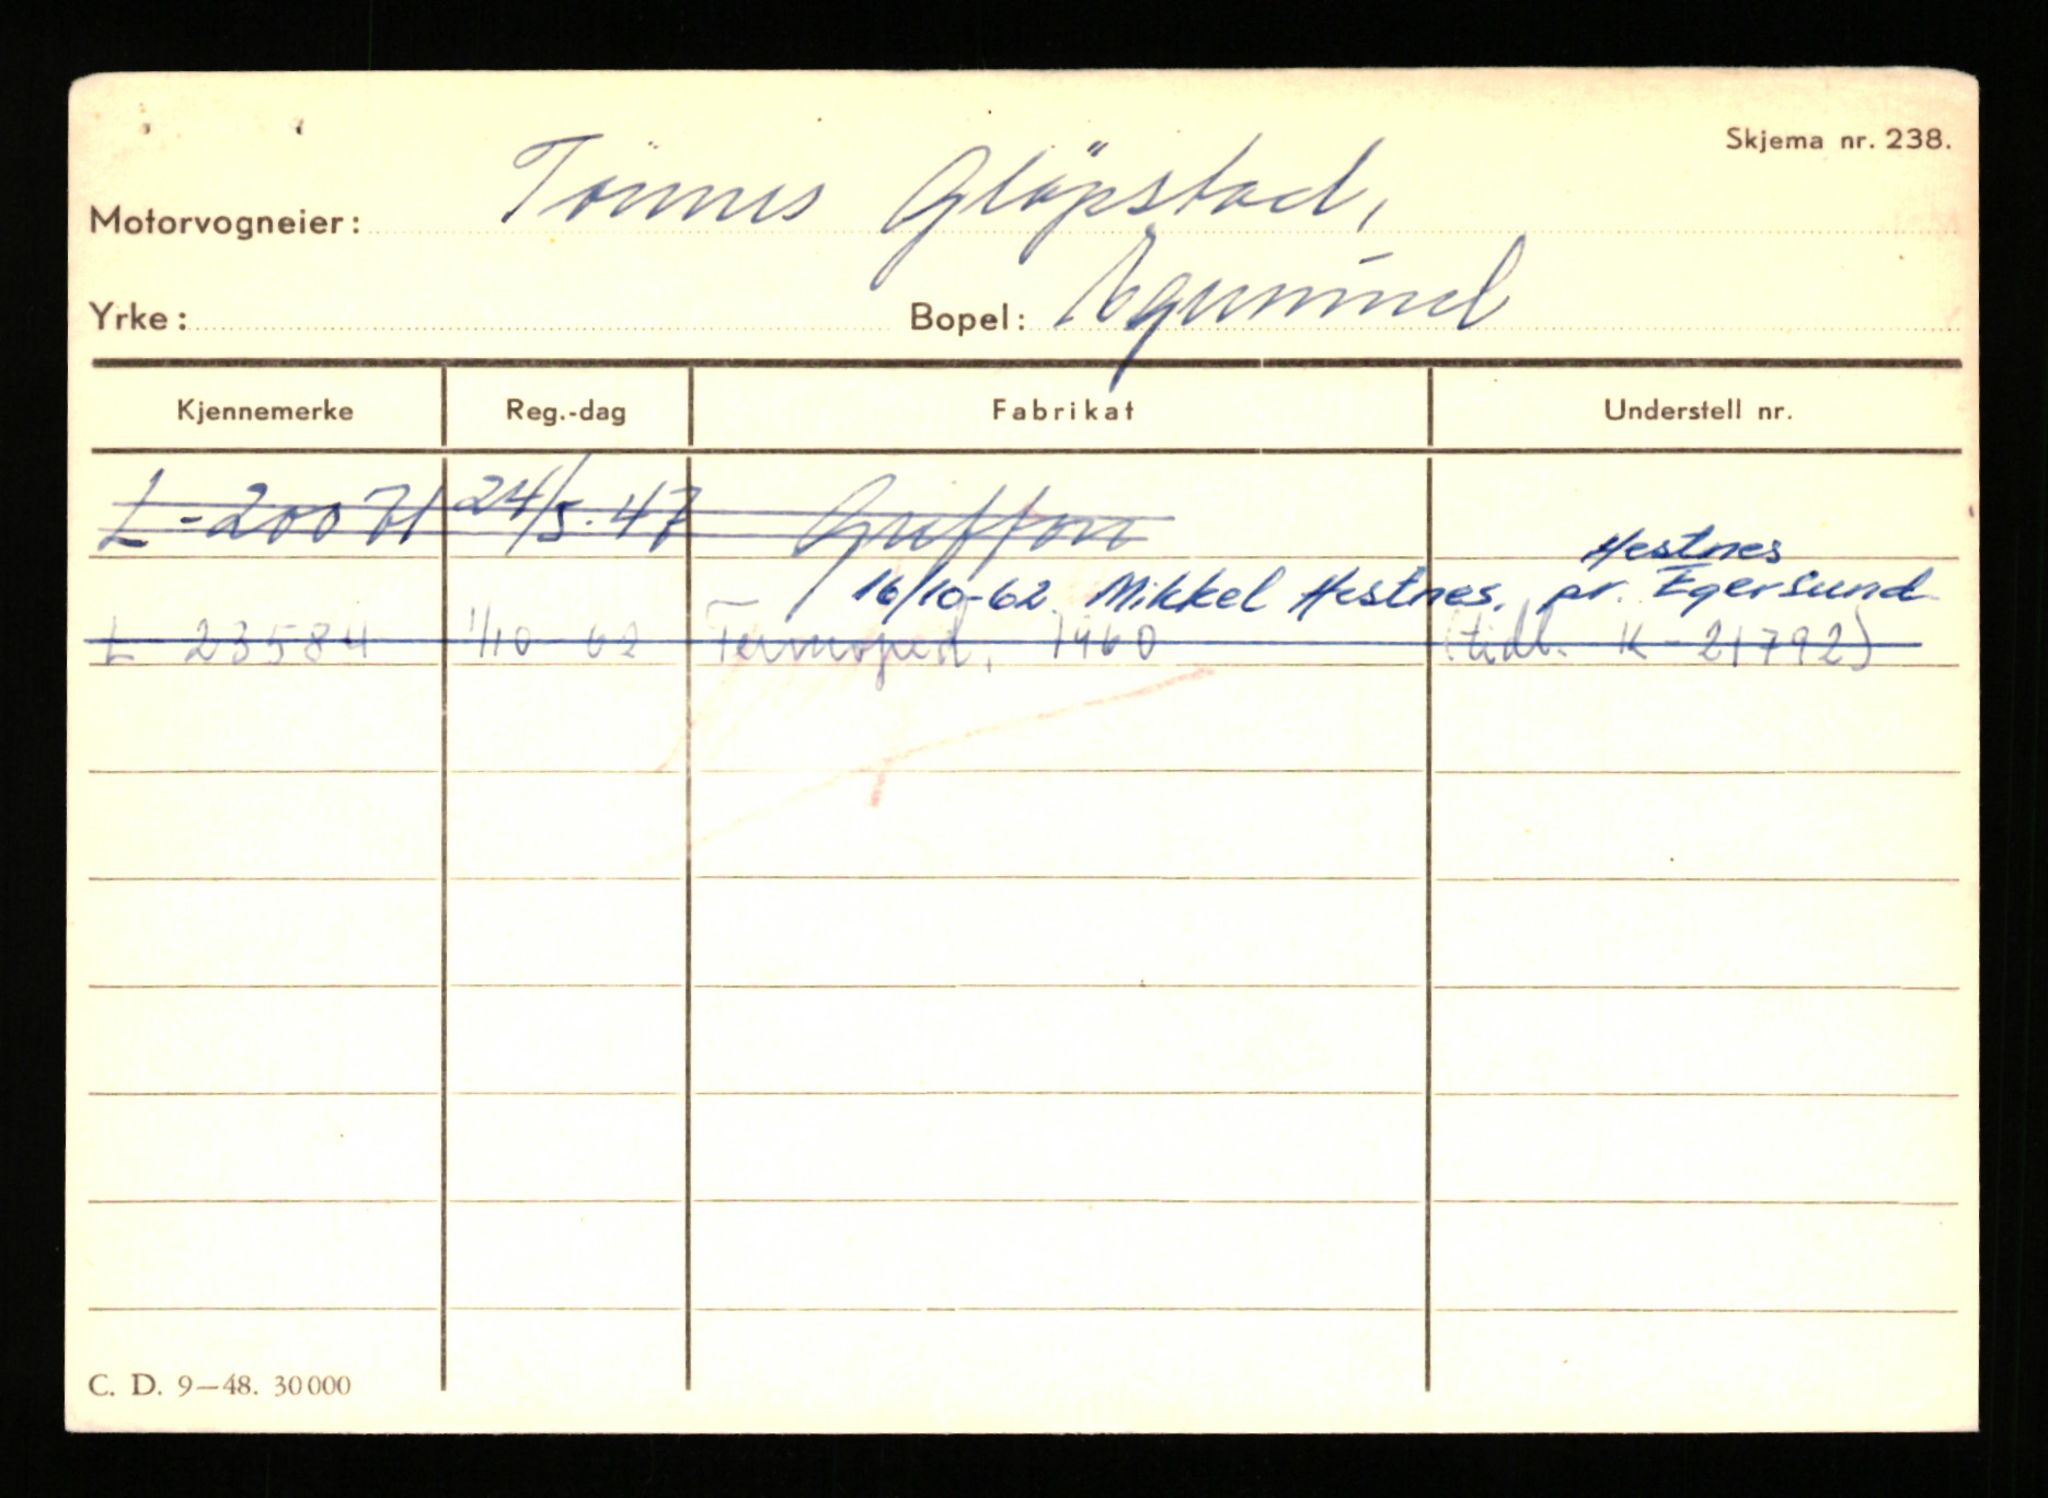 Skjema nr. 238.
Motorvogneier: Tönnes Glöpstad,
Yrke: Bopel: Egersund
Kjennemerke Reg.-dag Fabrikat Understell nr.
L-20071 24/5.47 Griffon
Hestnes
16/10-62. Mikkel Hestnes. pr. Egersund
L 23584 1/10 62 Termoped, 1960 (tidl. K-21792)
C. D. 9—48. 30000